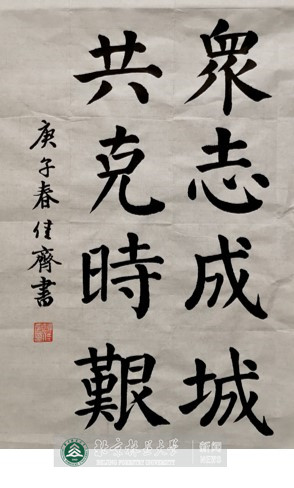 眾志成城
共克時艱
庚子春佳齊書
北京林业大学
BEIJING FORESTRY UNIVERSITY
新闻
NEWS